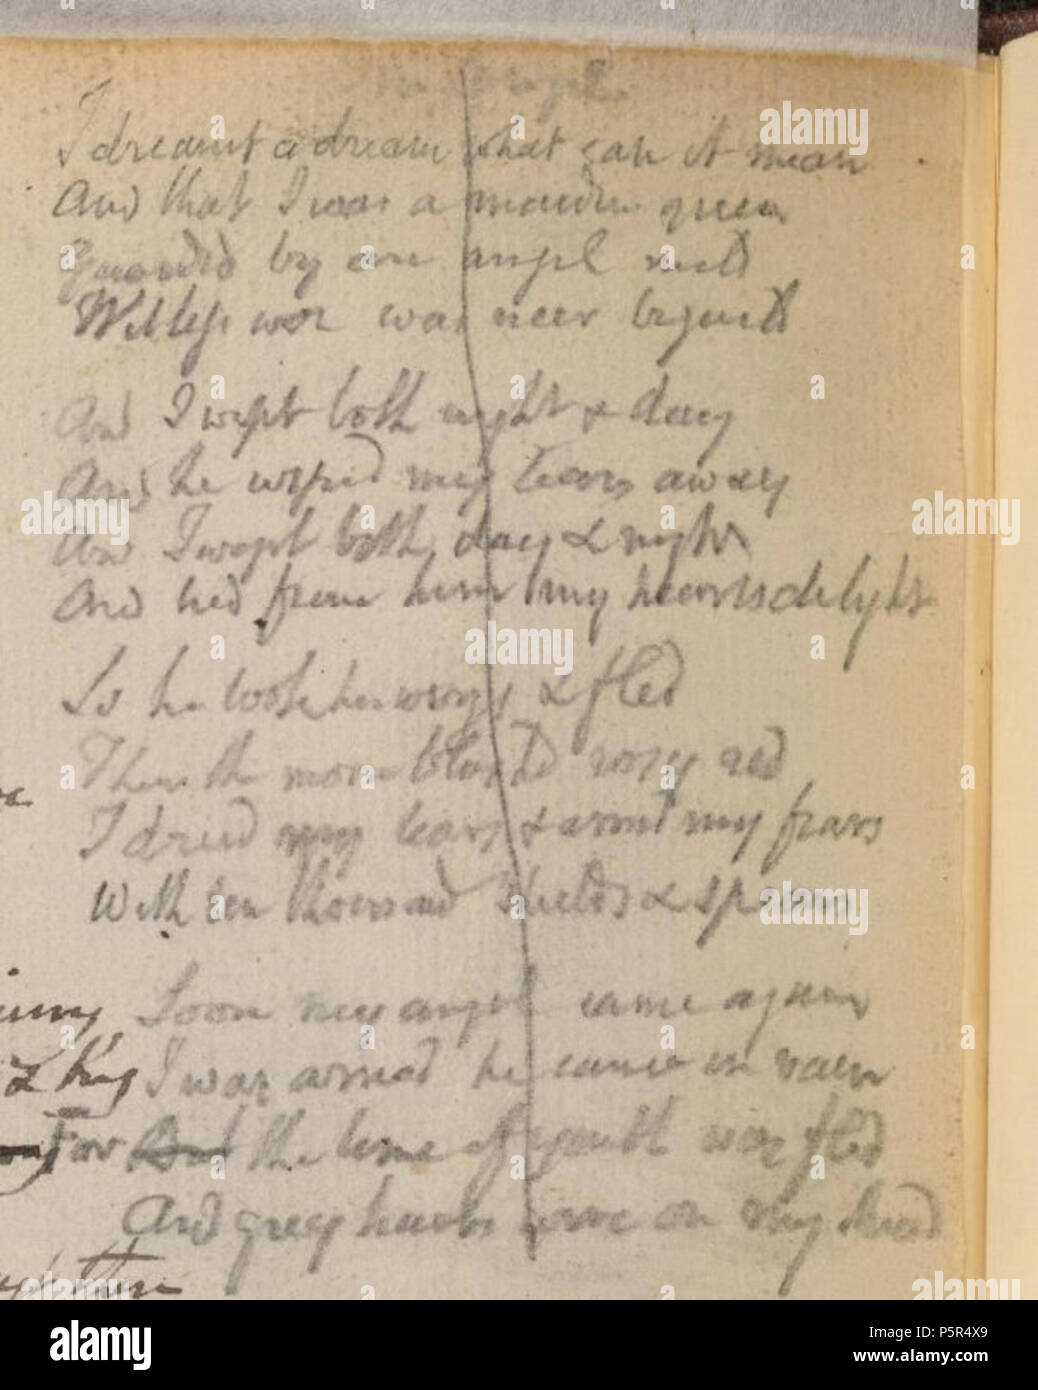 The Angel
I dreamt a dream what can it mean
And that I was a maiden queen
Guarded by an angel mild
Witless woe was neer beguild
And I wept both night & day
And he wiped my tears away
And I wept both day & night
And hid from him my hearts delight
So he took his wings & fled
Then the morn blushd rosy red
I dried my tears & armd my fears
With ten thousand shields & spears
Soon my angel came again
I was armd he came in vain
For But the time of youth was fled
And grey hairs were on my head
& King
there
a
alamy
alamy
Image ID: P5R4X9
www.alamy.com